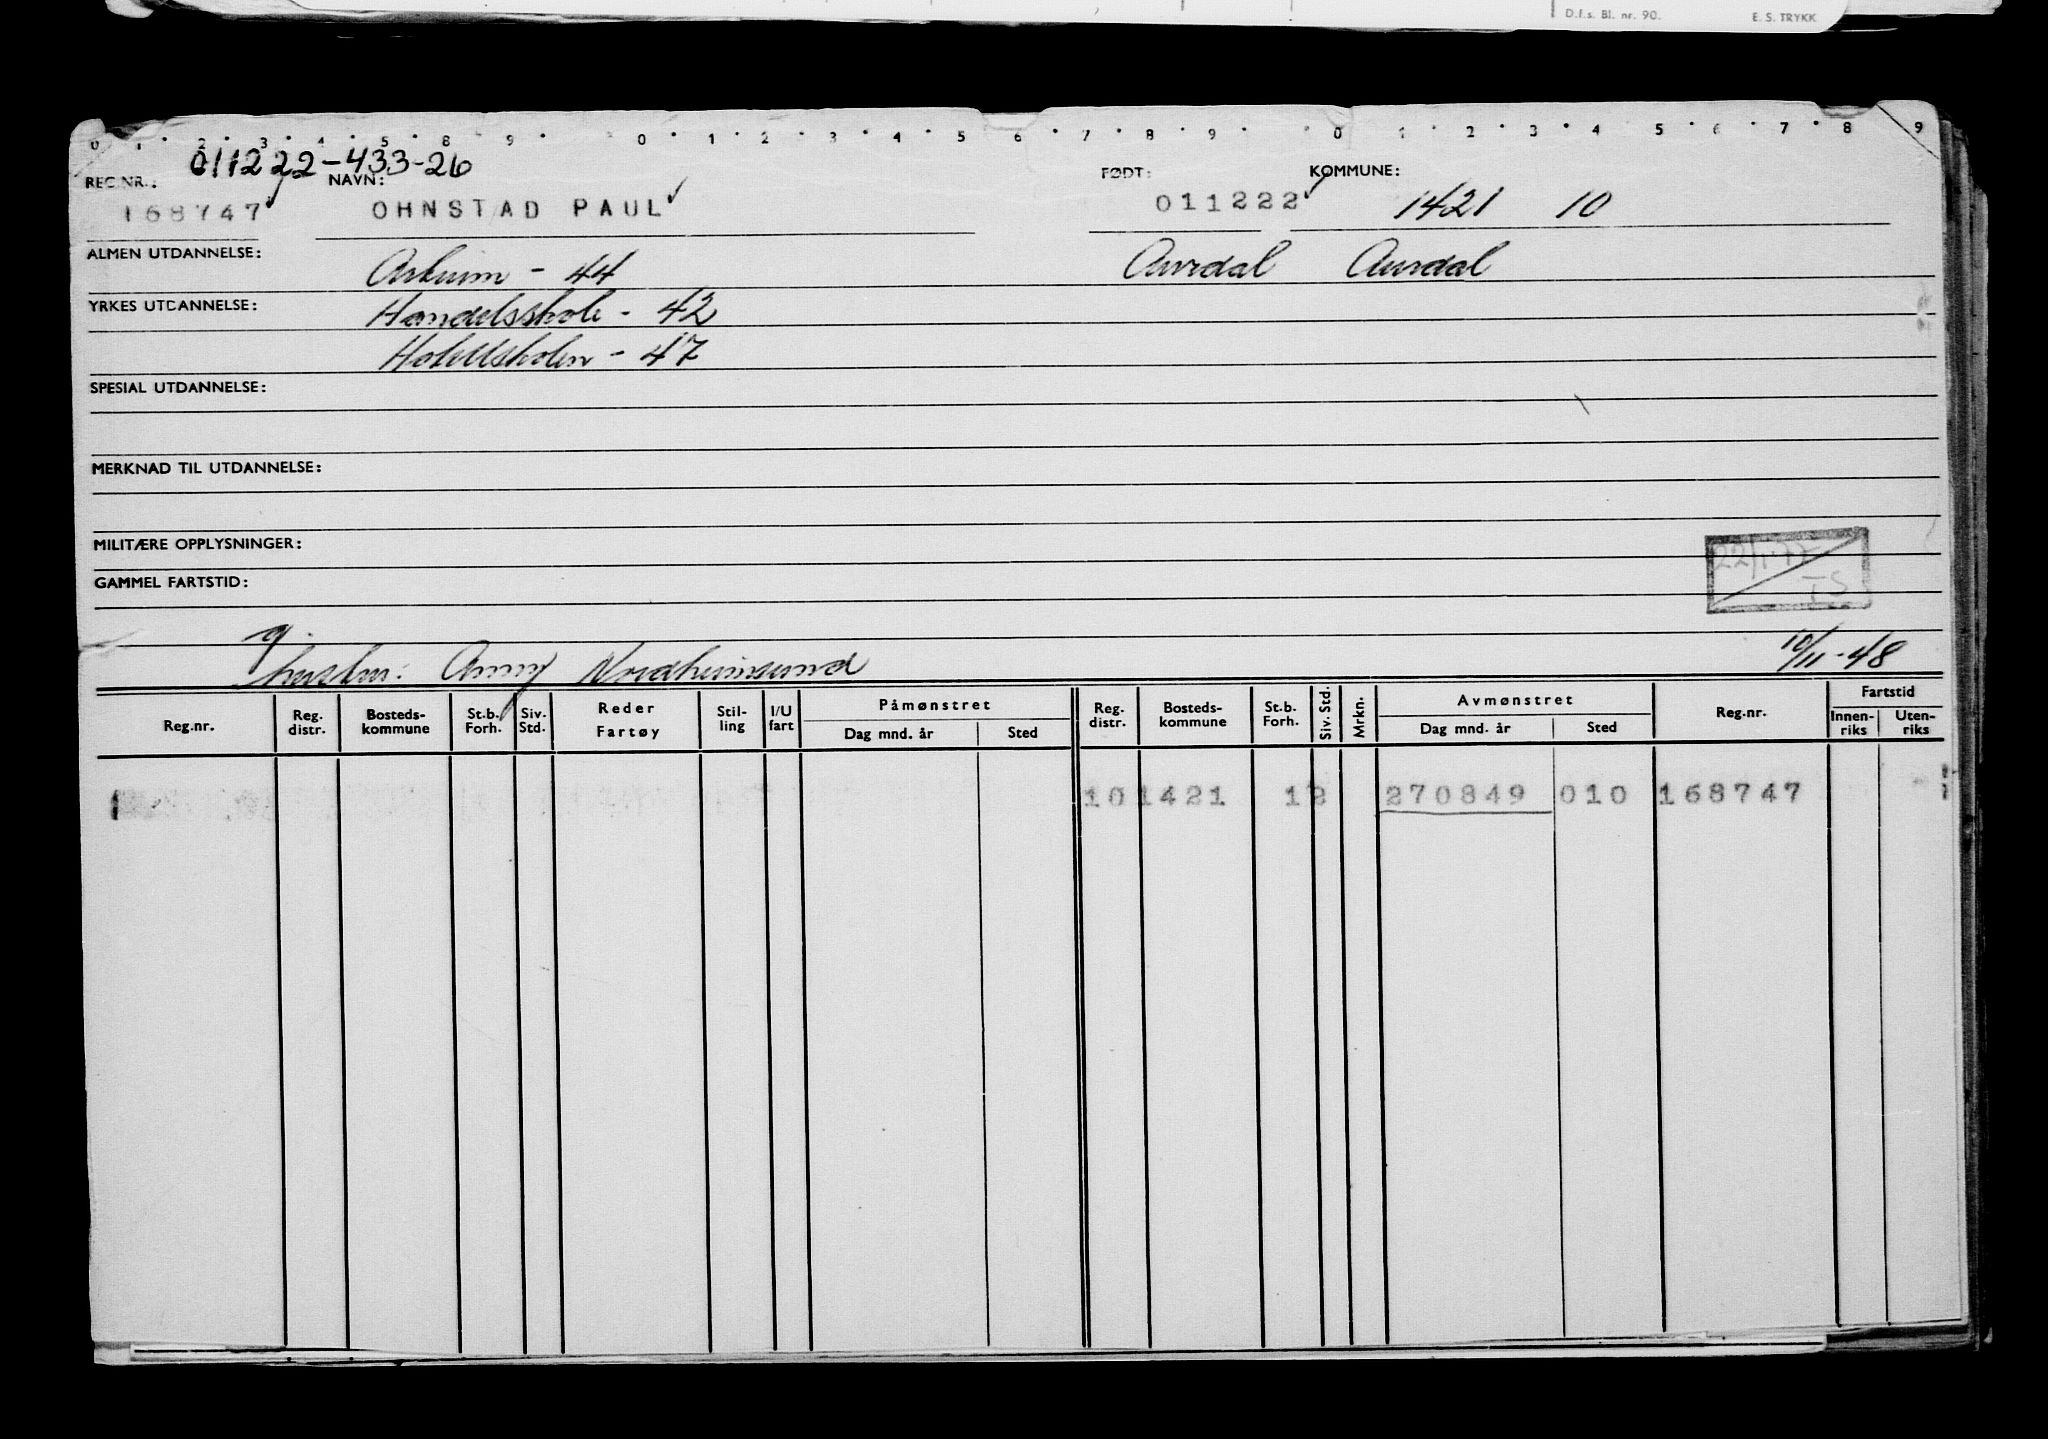 D.f.s. Bl. nr. 90. E. S. TRYKK
0 1 2 3 4 5 8 9 0 1 2 3 4 5 6 7 8 9 0 1 2 3 4 5 6 7 8 9
011222-433-26
REG.NR.: NAVN: FØDT: KOMMUNE:
168747 OHNSTAD PAUL 011222 1421 10
ALMEN UTDANNELSE: - 44 Aurdal Aurdal
YRKES UTDANNELSE: Handelsskole - 42
Hotellskolen - 47
SPESIAL UTDANNELSE:
MERKNAD TIL UTDANNELSE:
MILITÆRE OPPLYSNINGER:
22/1-77
GAMMEL FARTSTID:
TS
g.
hustru: Anny Nordheimsund 10/11-48
Reg.nr. Reg. distr. Bosteds- kommune St.b. Forh. Siv. Std. Reder Fartøy Stil- ling I/U fart Påmønstret Dag mnd. år Sted Reg. distr. Bosteds- kommune St.b. Forh. Siv. Std. Mrkn. Avmønstret Dag mnd. år Sted Reg.nr. Fartstid Innen- riks Uten- riks
10 1421 12 270849 010 168747